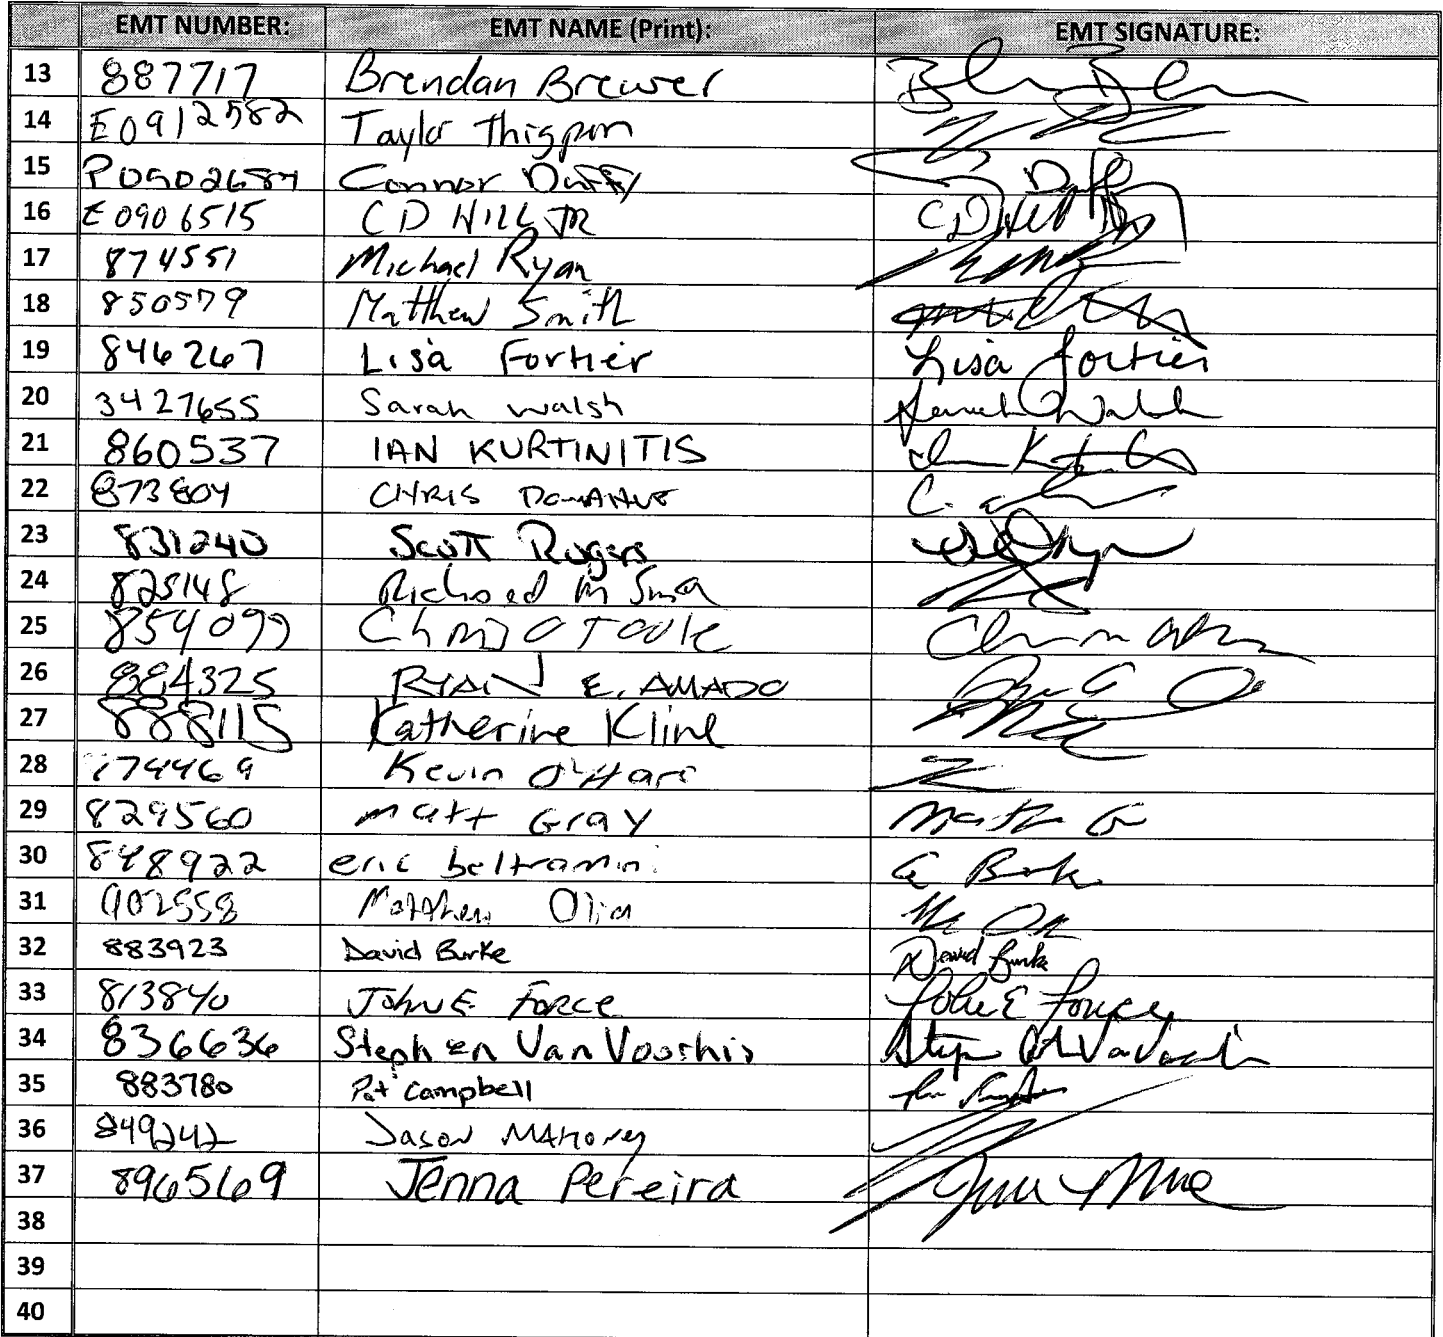 EMT NUMBER: EMT NAME (Print): EMT SIGNATURE:
13 887717 Brendan Brewer
14 E0912582 Taylor Thigpen
15 P0502684 Connor Duffy Duffy
16 E0906515 CD HILL JR CD Hill JR
17 874551 Michael Ryan
18 850579 Matthew Smith
19 846267 Lisa Fortier Lisa Fortier
20 3427655 Sarah Walsh Sarah Walsh
21 860537 IAN KURTINITIS
22 873804 CHRIS DONAHUE
23 831240 Scott Rogers
24 825148 Richard M
25 854099 Chris OToole
26 884325 RYAN E. AMADO
27 888115 Katherine Kline
28 174469 Kevin O'Hara
29 829560 Matt Gray
30 848922 eric beltramini
31 902558 Matthew
32 883923 David Burke David Burke
33 813840 John E. Force John E Force
34 836636 Stephen Van Voorhis
35 883780 Pat Campbell
36 849242 Jason Mahoney
37 896569 Jenna Pereira
38
39
40